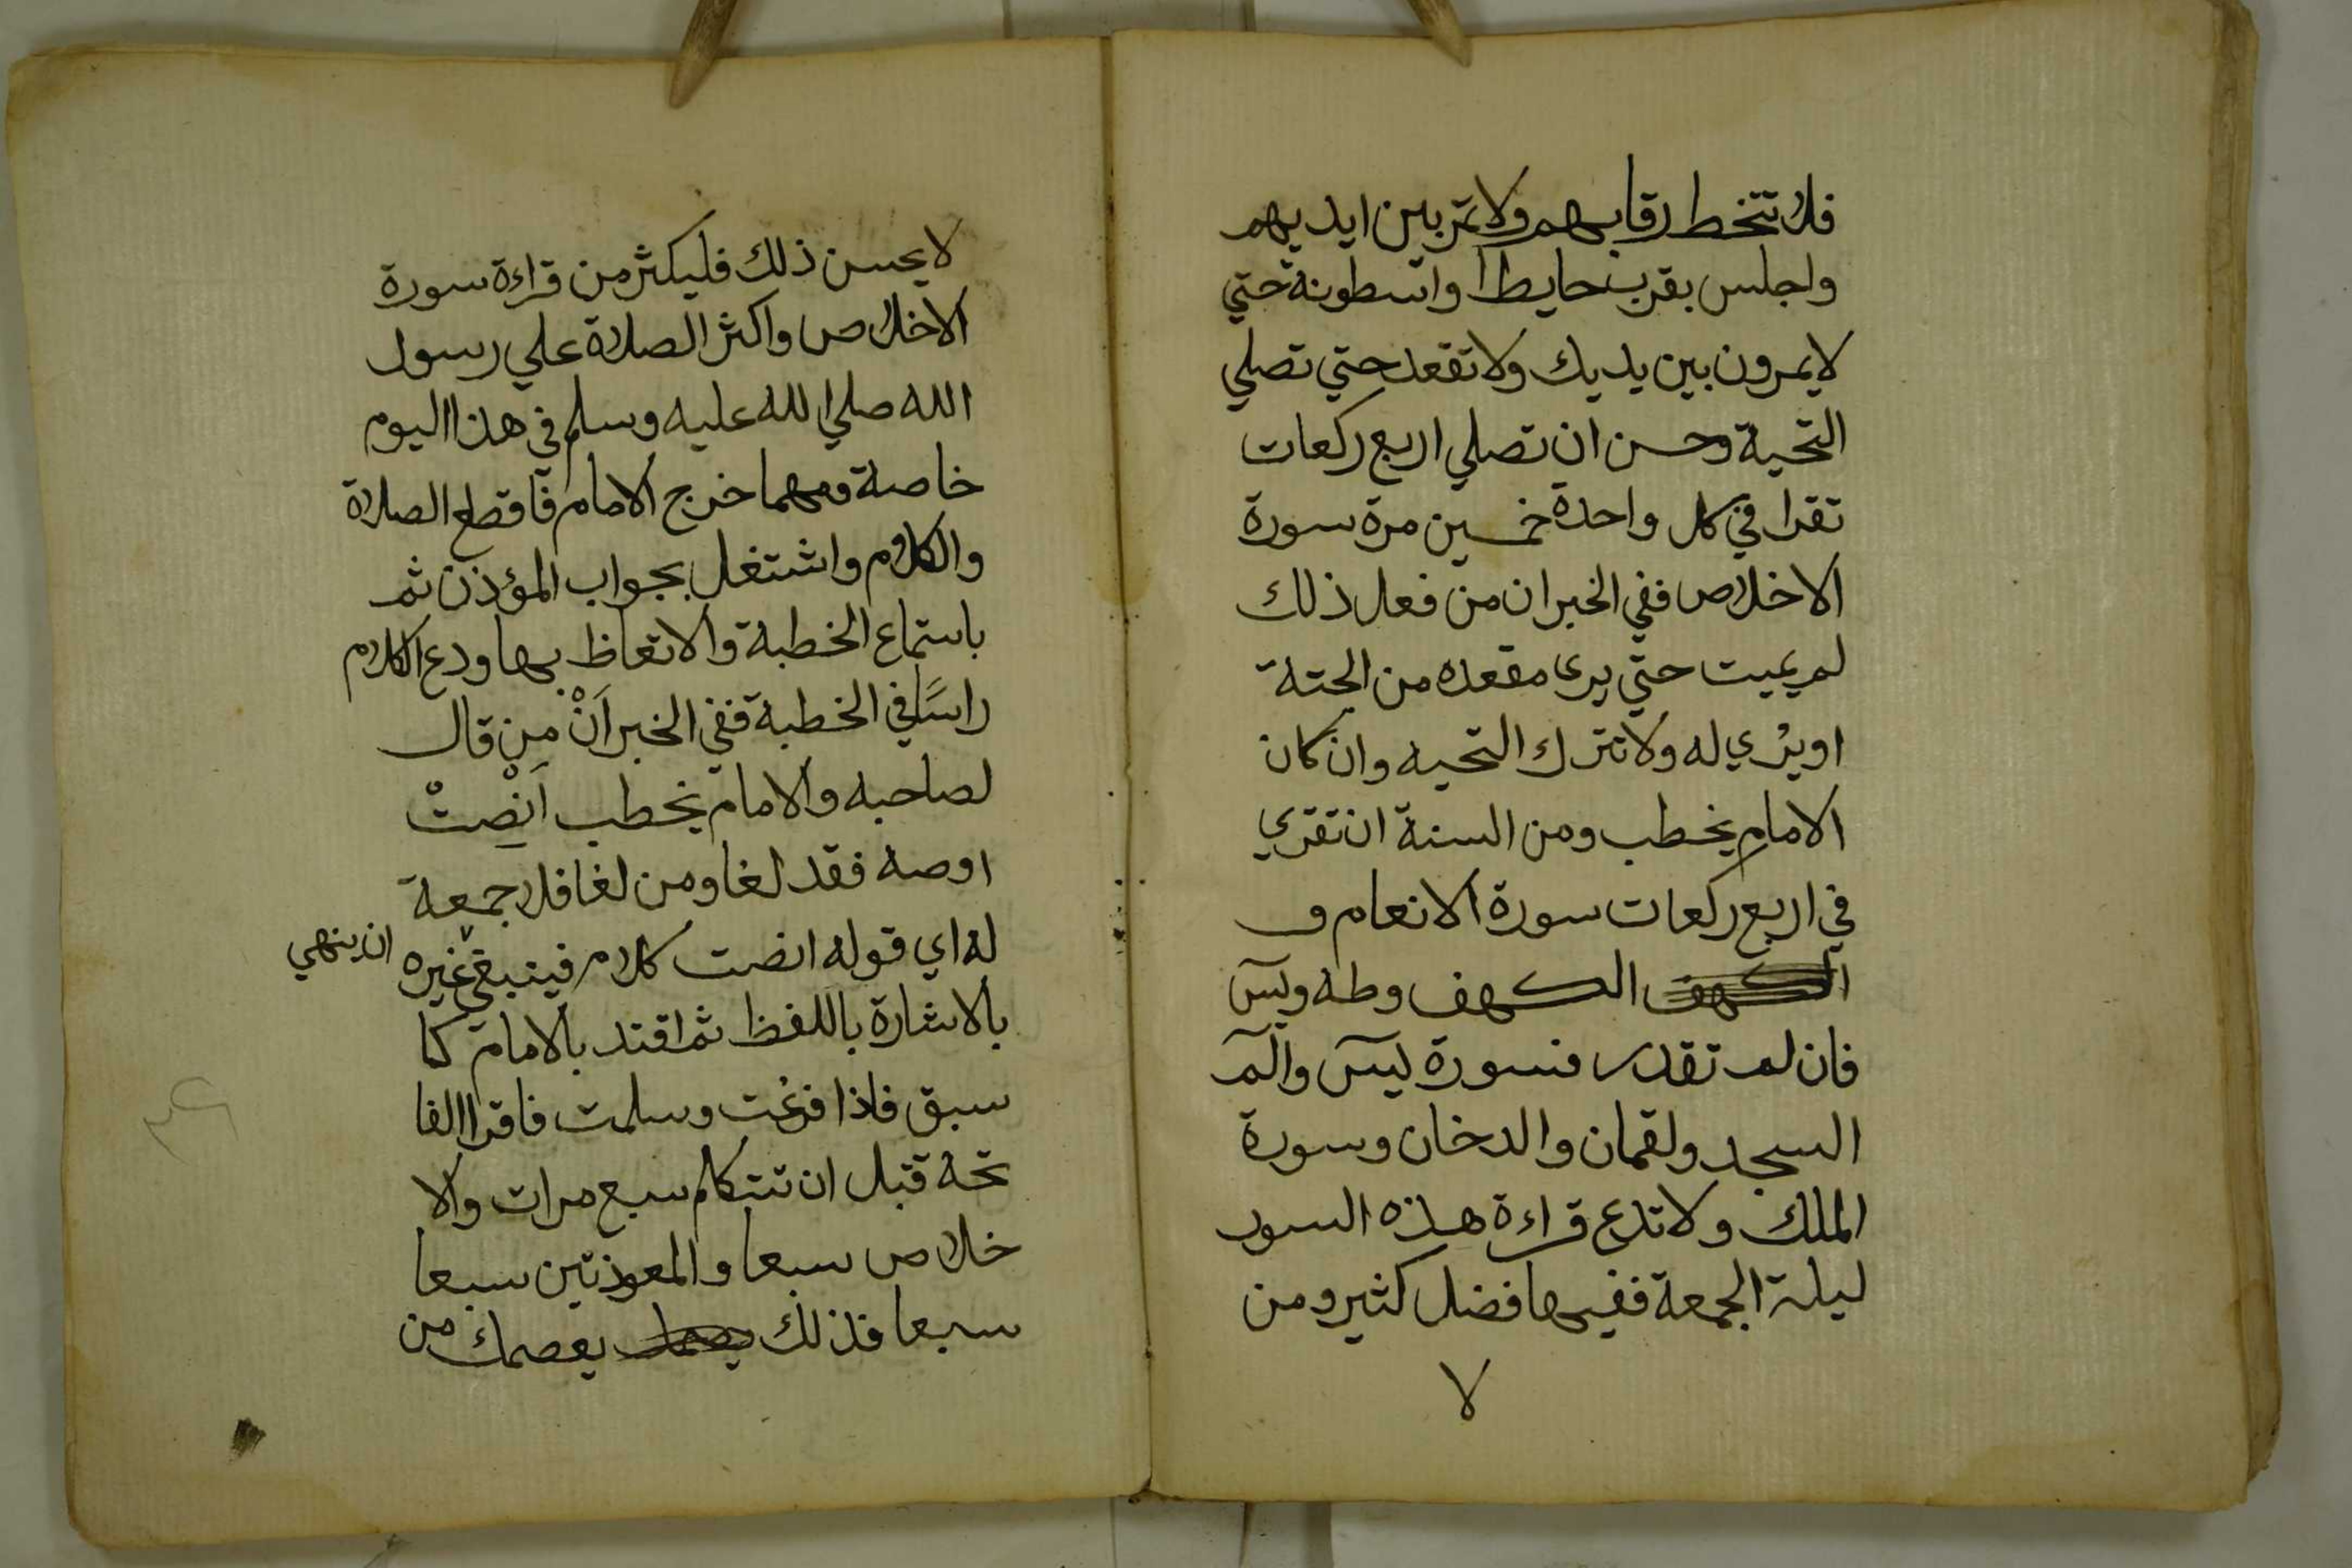 فلا تتخط رقابهم ولا تمر بين ايديهم
واجلس بقرب حايط او اسطونة حتي
لا يمرون بين يديك ولا تقعد حتي تصلي
التحية وحسن ان تصلي اربع ركعات
تقرا في كل واحدة خمسين مرة سورة
الاخلاص ففي الخبر ان من فعل ذلك
لم يميت حتي يرى مقعده من الجنة
او يرى له ولا تترك التحيه وان كان
الامام يخطب ومن السنة ان تقري
في اربع ركعات سورة الانعام و
الكهف الكهف وطه ويس
فان لم تقدر فسورة يس والم
السجد ولقمان والدخان وسورة
الملك ولا تدع قراءة هذه السور
ليلة الجمعة ففيها فضل كثير ومن
لا
لا يحسن ذلك فليكثر من قراءة سورة
الاخلاص واكثر الصلاة علي رسول
الله صلي الله عليه وسلم في هذا اليوم
خاصة ومهما خرج الامام فاقطع الصلاة
والكلام واشتغل بجواب المؤذن ثم
باستماع الخطبة والاتعاظ بها ودع الكلام
راسًا في الخطبة ففي الخبر اَنْ مِن قال
لصاحبه والامام يخطب اَنْصِتْ
او صه فقد لغا ومن لغا فلا جمعة
له اي قوله انصت كلام فينبغي غيره
ان ينهي
بالاشارة باللفظ ثم اقتد بالامام كما
سبق فاذا فرغت وسلمت فاقرا الفا
تحه قبل ان تتكلم سبع مرات والا
خلاص سبعا والمعوذتين سبعا
سبعا فذلك يعصمك من